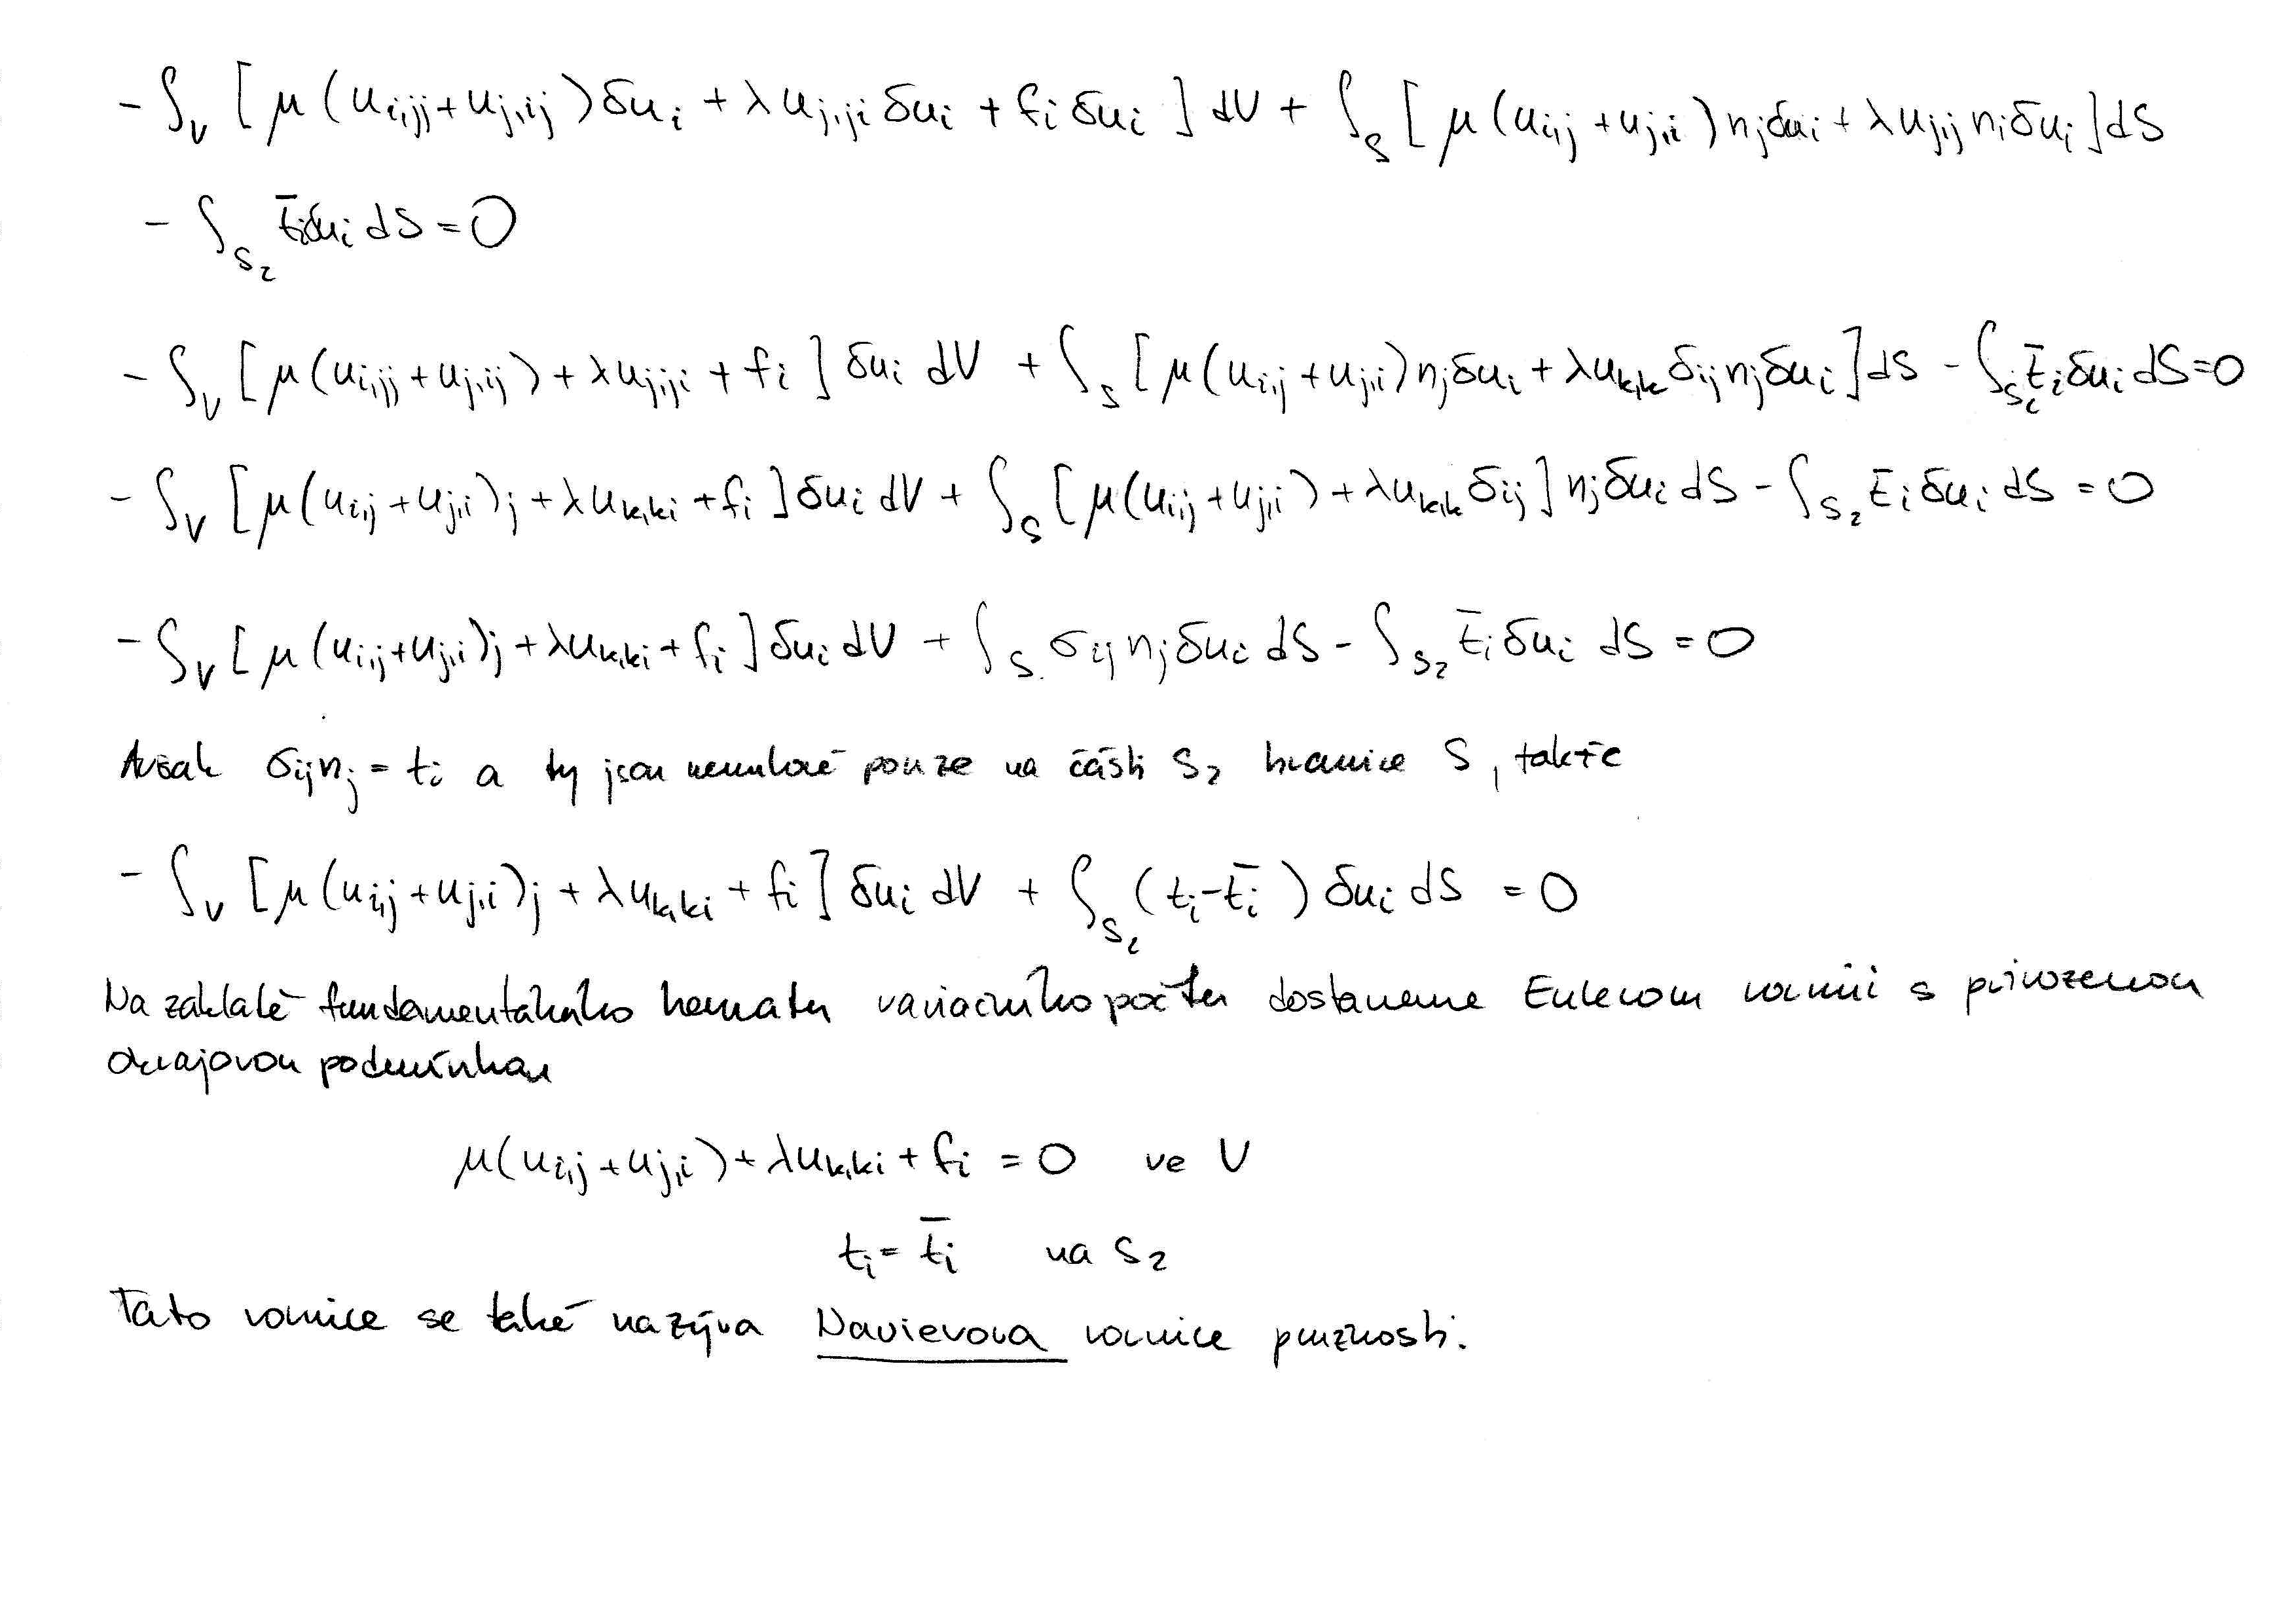 - ∫_V [μ(u_{i,jj} + u_{j,ij})δu_i + λu_{j,ji}δu_i + f_iδu_i] dV + ∫_S [μ(u_{i,j} + u_{j,i})n_jδu_i + λu_{j,j}n_iδu_i]dS
- ∫_{S_2} t̄_iδu_i dS = 0
- ∫_V [μ(u_{i,jj} + u_{j,ij}) + λu_{j,ji} + f_i] δu_i dV + ∫_S [μ(u_{i,j} + u_{j,i})n_jδu_i + λu_{k,k}δ_{ij}n_jδu_i]dS - ∫_{S_2} t̄_iδu_i dS = 0
- ∫_V [μ(u_{i,j} + u_{j,i})_j + λu_{k,ki} + f_i] δu_i dV + ∫_S [μ(u_{i,j} + u_{j,i}) + λu_{k,k}δ_{ij}] n_jδu_i dS - ∫_{S_2} t̄_iδu_i dS = 0
- ∫_V [μ(u_{i,j} + u_{j,i})_j + λu_{k,ki} + f_i] δu_i dV + ∫_S σ_{ij}n_jδu_i dS - ∫_{S_2} t̄_iδu_i dS = 0
Avšak σ_{ij}n_j = t_i a ty jsou nenulové pouze na části S_2 hranice S, takže
- ∫_V [μ(u_{i,j} + u_{j,i})_j + λu_{k,ki} + f_i] δu_i dV + ∫_{S_2} (t_i - t̄_i) δu_i dS = 0
Na základě fundamentálního lemmatu variačního počtu dostaneme Eulerovu rovnici s přirozenou
okrajovou podmínkou
μ(u_{i,j} + u_{j,i}) + λu_{k,ki} + f_i = 0 ve V
t_i = t̄_i na S_2
Tato rovnice se také nazývá Navierova rovnice pružnosti.